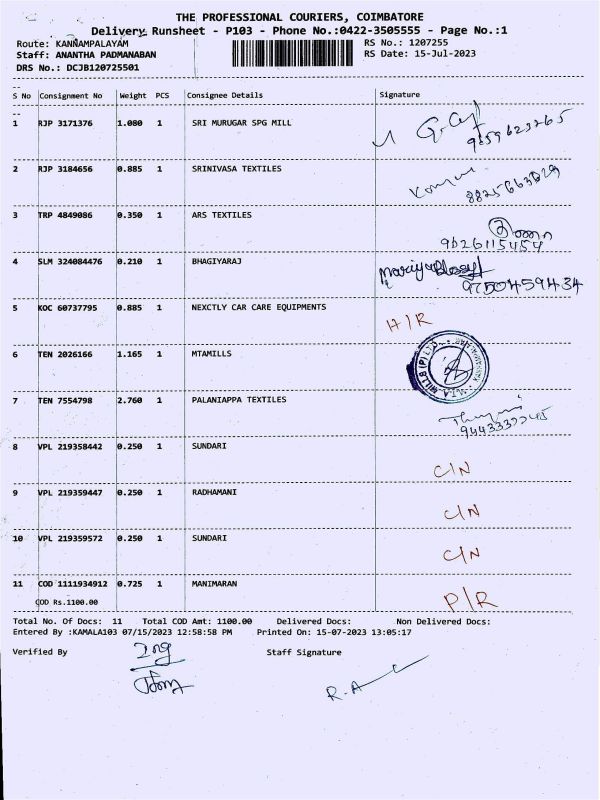 THE PROFESSIONAL COURIERS, COIMBATORE
Delivery Runsheet - P103 - Phone No.:0422-3505555 - Page No.:1
Route: KANNAMPALAYAM RS No.: 1207255
Staff: ANANTHA PADMANABAN RS Date: 15-Jul-2023
DRS No.: DCJB120725501
S No Consignment No Weight PCS Consignee Details Signature
--
1 RJP 3171376 1.080 1 SRI MURUGAR SPG MILL
2 RJP 3184656 0.885 1 SRINIVASA TEXTILES
3 TRP 4849086 0.350 1 ARS TEXTILES
9626115454
4 SLM 324084476 0.210 1 BHAGIYARAJ
9750459434
5 KOC 60737795 0.885 1 NEXCTLY CAR CARE EQUIPMENTS H/R
6 TEN 2026166 1.165 1 MTAMILLS
7 TEN 7554798 2.760 1 PALANIAPPA TEXTILES
8 VPL 219358442 0.250 1 SUNDARI C/N
9 VPL 219359447 0.250 1 RADHAMANI C/N
10 VPL 219359572 0.250 1 SUNDARI C/N
11 COD 1111934912 0.725 1 MANIMARAN P/R
COD Rs.1100.00
Total No. Of Docs: 11 Total COD Amt: 1100.00 Delivered Docs: Non Delivered Docs:
Entered By :KAMALA103 07/15/2023 12:58:58 PM Printed On: 15-07-2023 13:05:17
Verified By Staff Signature
R.A